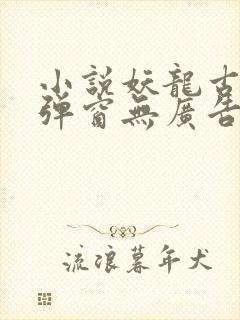 小說妖龍古
彈窗無廣告
流浪暮年犬